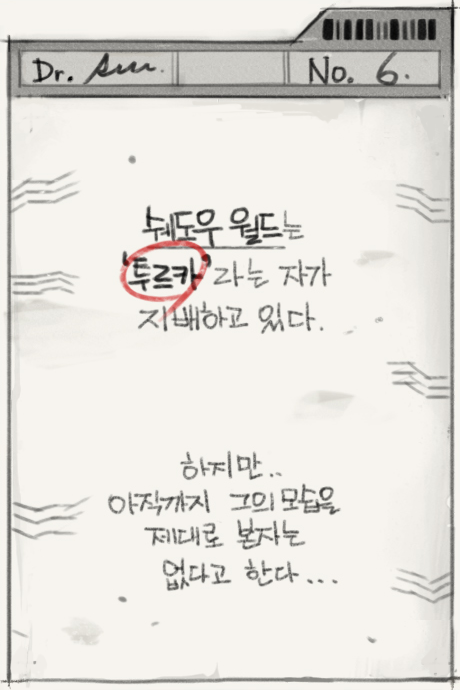 Dr.
No. 6.
쉐도우 월드는
'투르카'라는 자가
지배하고 있다.
하지만..
아직까지 그의 모습을
제대로 본자는
없다고 한다...